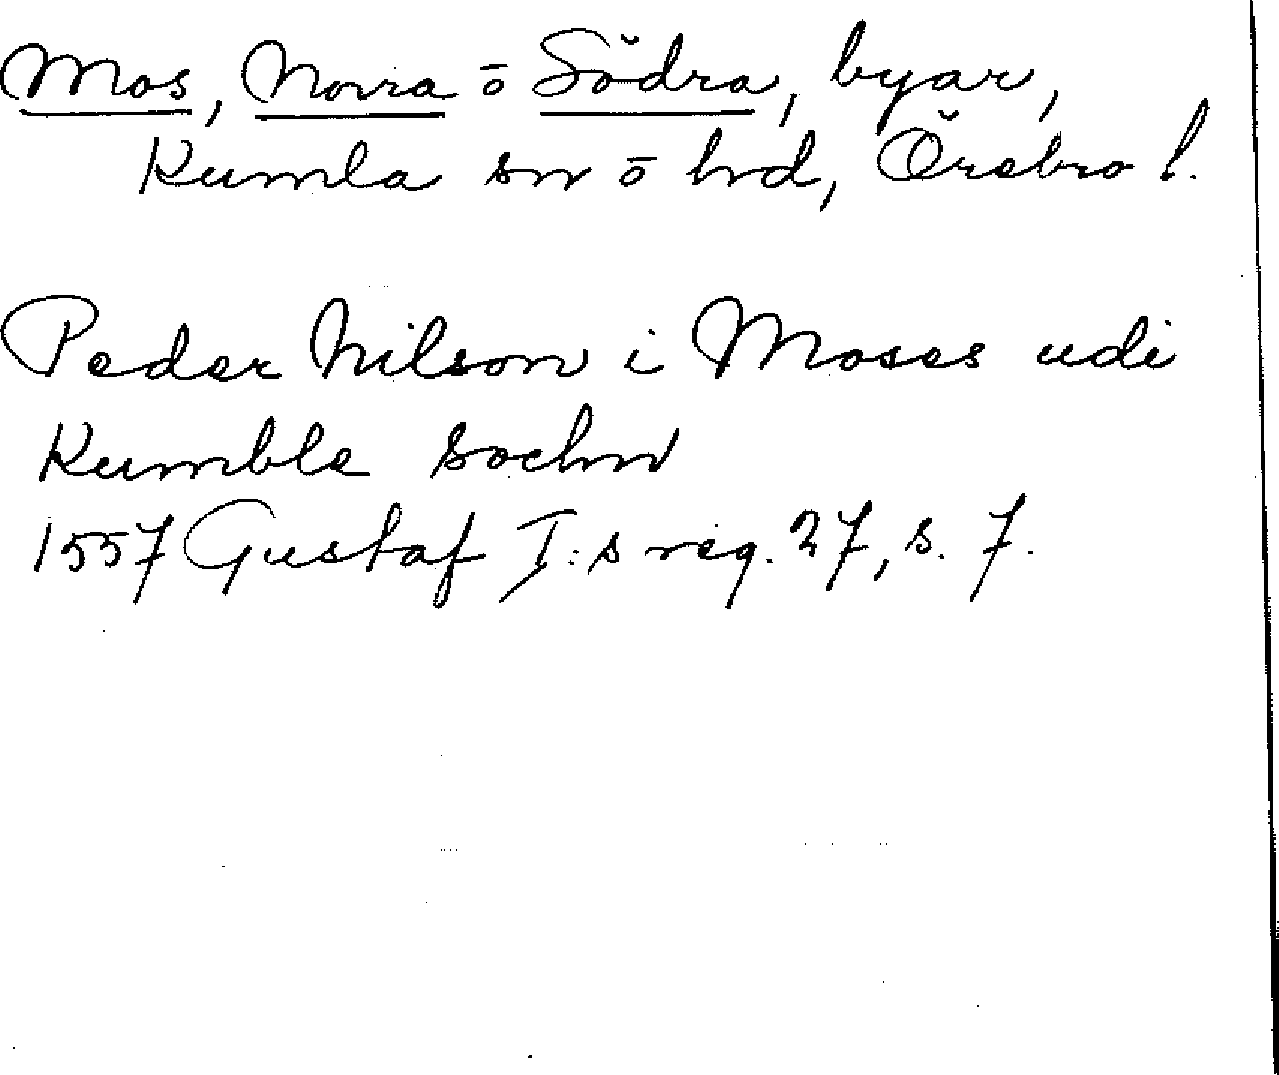 Mos, Norra ō Södra, byar,
Kumla sn ō hrd, Örebro l.
Peder Nilson i Moses udi
Kumble sochn
1557 Gustaf I:s reg. 27, s. 7.